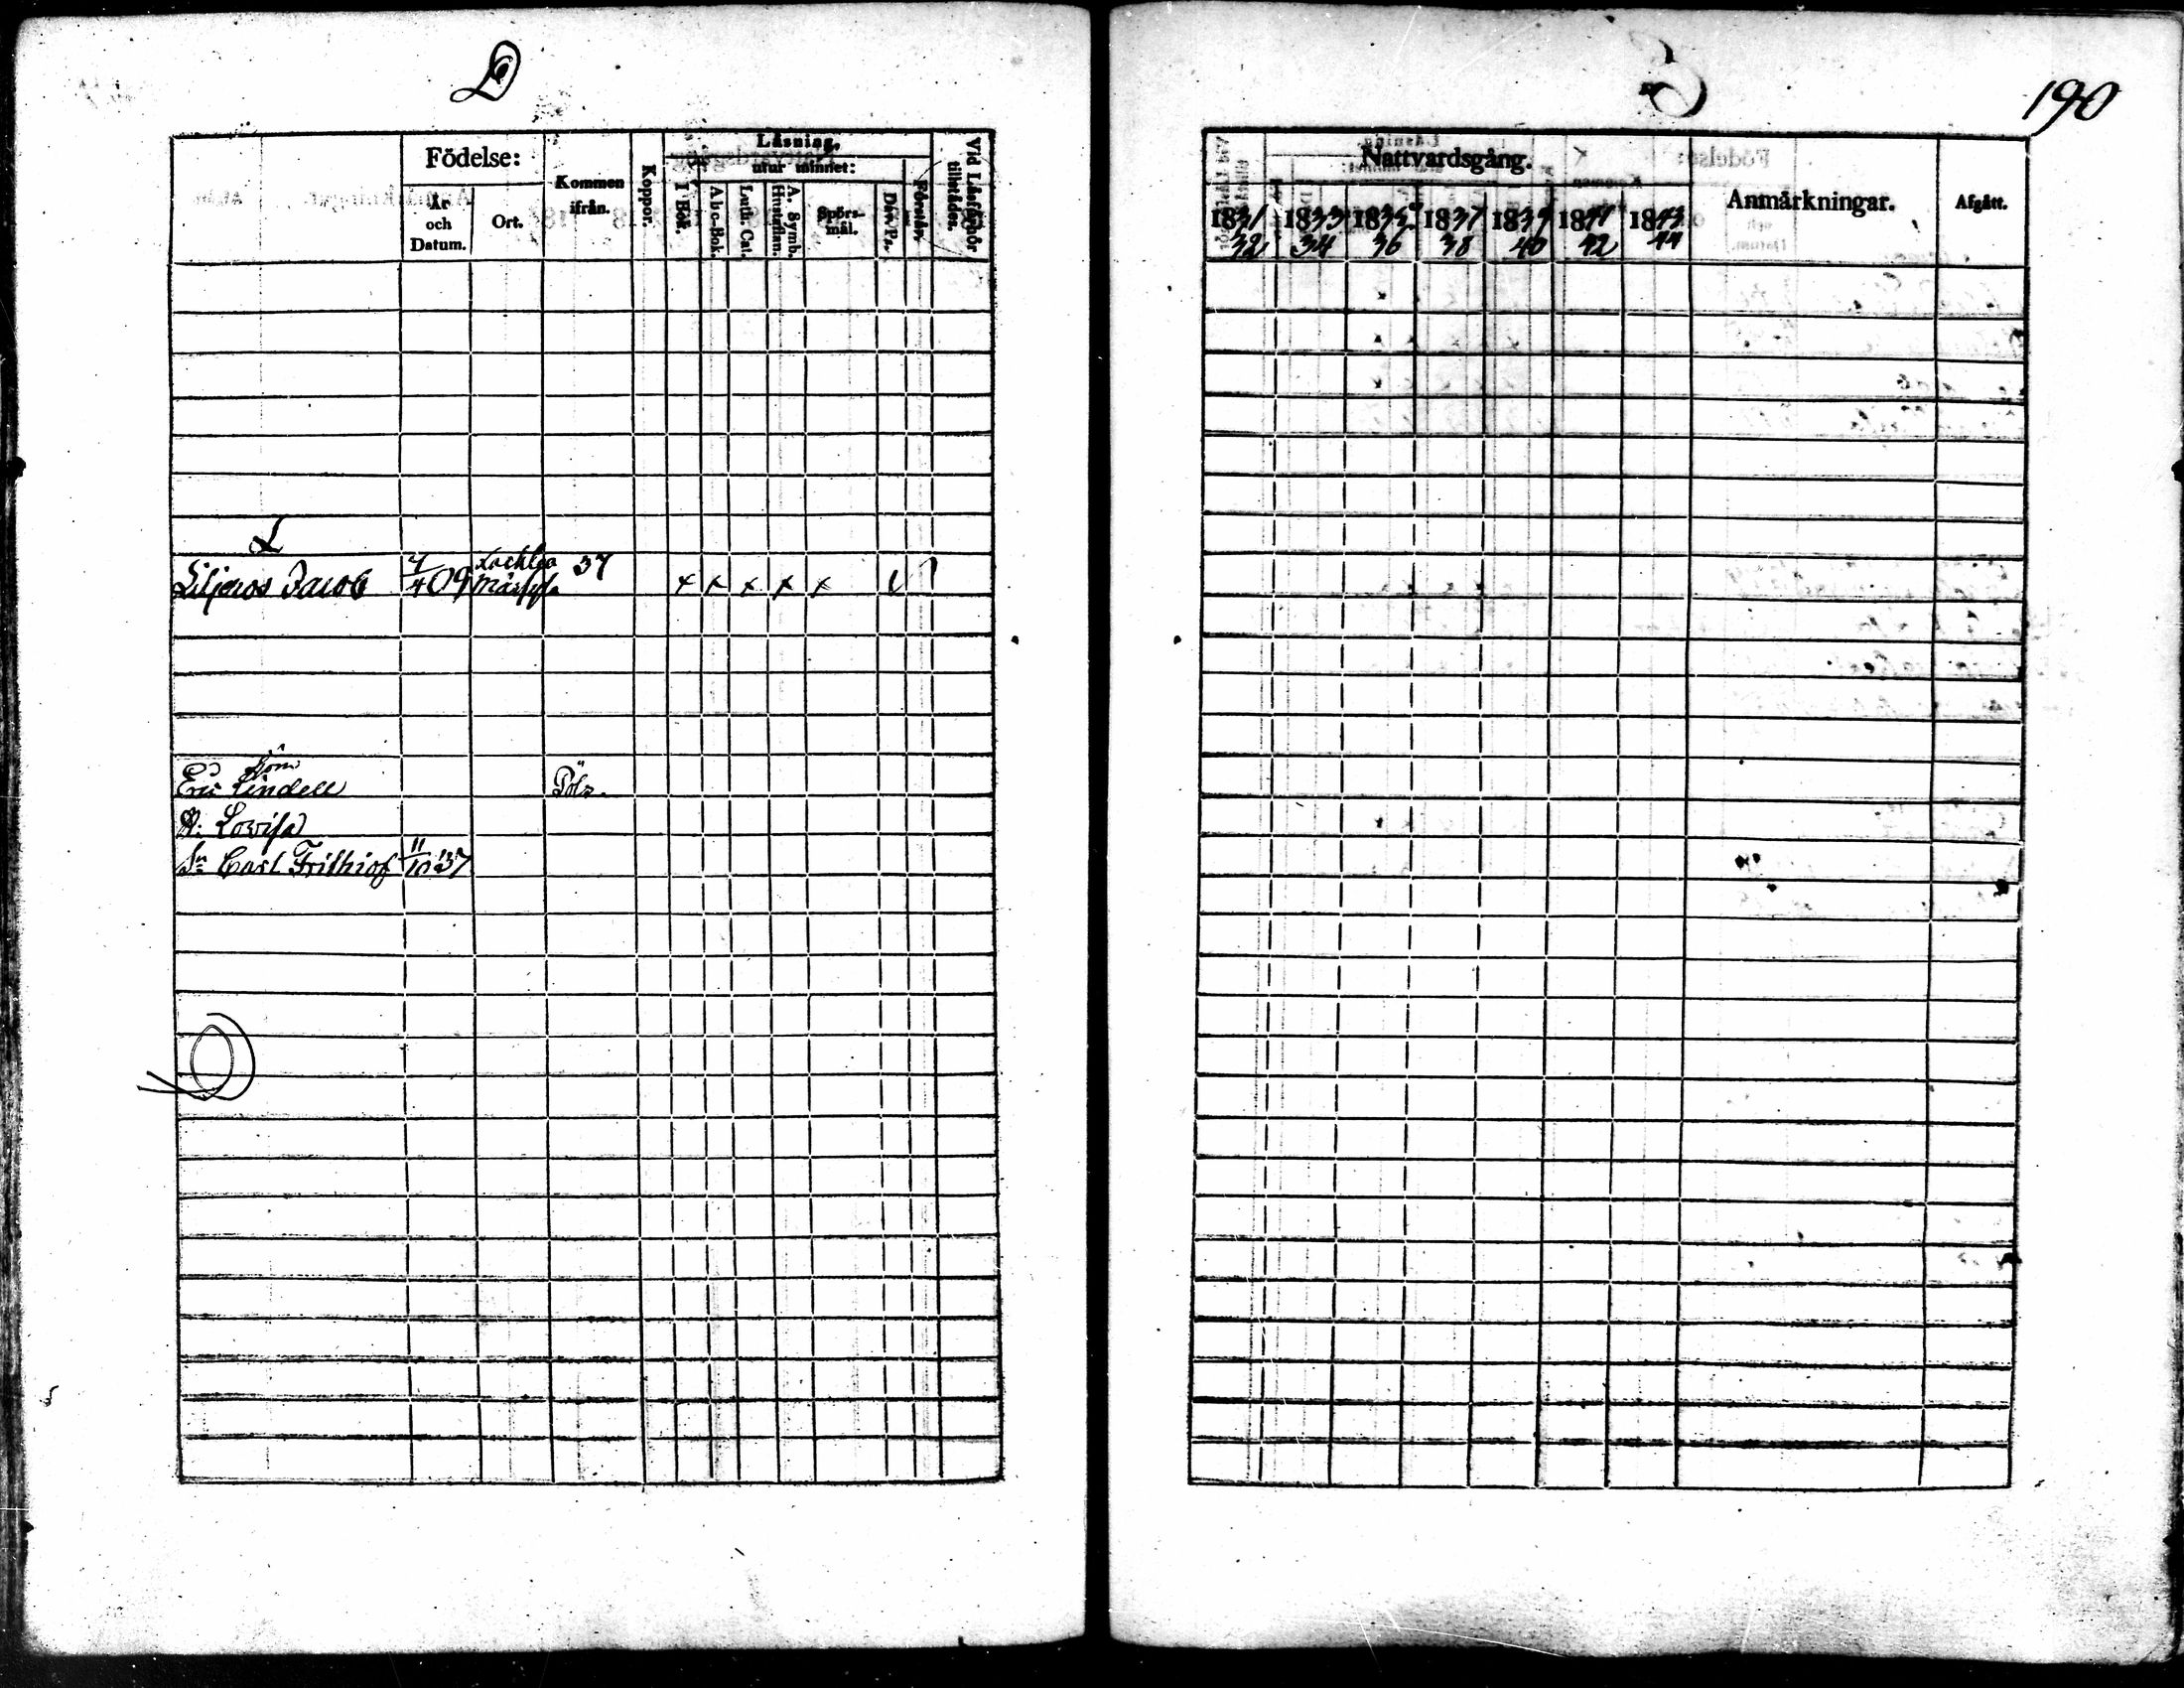 D
190
Födelse:
År och Datum.
Ort.
Kommen ifrån.
Koppor.
Läsning.
utur minnet:
I Bok.
Abc-Bok.
Luth. Cat.
A. Symb. Hustaflan.
Spörsmål.
Dav. Ps.
Förstår.
Vid Läsförhör tillstädes.
Nattvardsgång.
1831 1833 1835 1837 1839 1841 1843
32 34 36 38 40 42 44
Anmärkningar.
Afgått.
L
Liljeros Jacob 4/4 09 37 x x x x x
Eric Lindell Pöls.
H: Lovisa
Sn Carl Frithiof 11/10 37